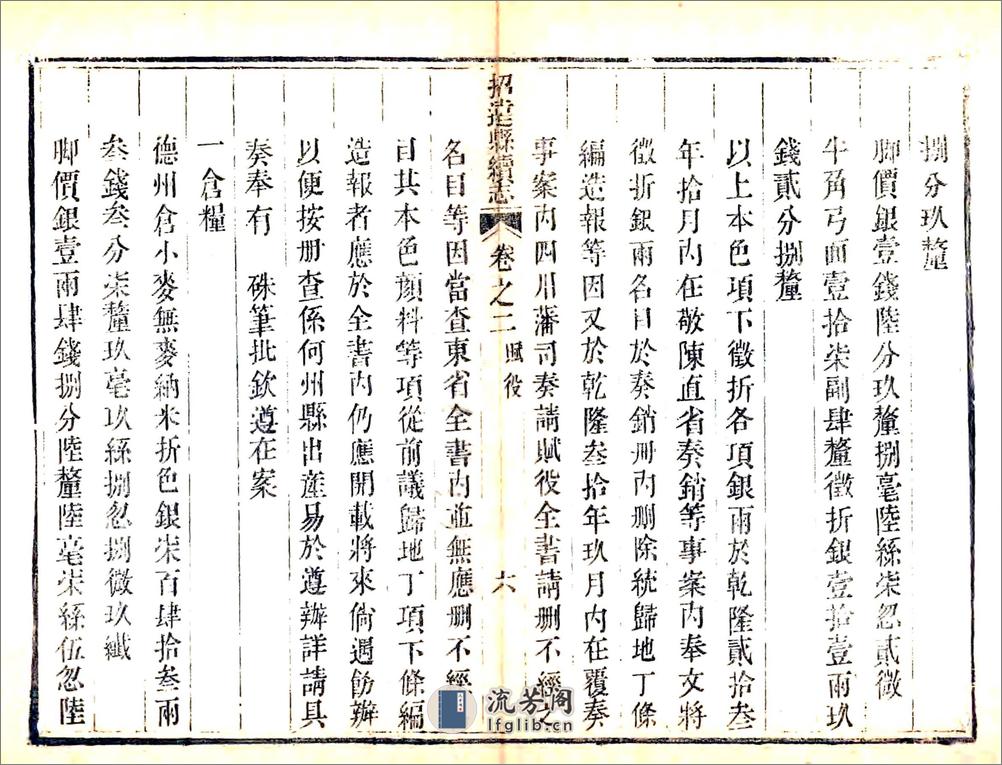 捌分玖釐
脚價銀壹錢陸分玖釐捌毫陸絲柒忽貳微
牛角弓面壹拾柒副肆釐徵折銀壹拾壹兩玖
錢貳分捌釐
以上本色項下徵折各項銀兩於乾隆貳拾叁
年拾月內在敬陳直省奏銷等事案內奉文將
徵折銀兩名目於奏銷册內删除統歸地丁條
編造報等因又於乾隆叁拾年玖月內在覆奏
事案內四川藩司奏請賦役全書請删不經之
招遠縣續志 卷之二 賦役 六
名目等因當查東省全書內並無應删不經名
目其本色顏料等項從前議歸地丁項下條編
造報者應於全書內仍應開載將來倘遇飭辦
以便按册查係何州縣出產易於遵辦詳請具
奏奉有 硃筆批欽遵在案
一倉糧
德州倉小麥無麥納米折色銀柒百肆拾叁兩
叁錢叁分柒釐玖毫玖絲捌忽捌微玖纖
脚價銀壹兩肆錢捌分陸釐陸毫柒絲伍忽陸
流芳阁
lfglib.cn